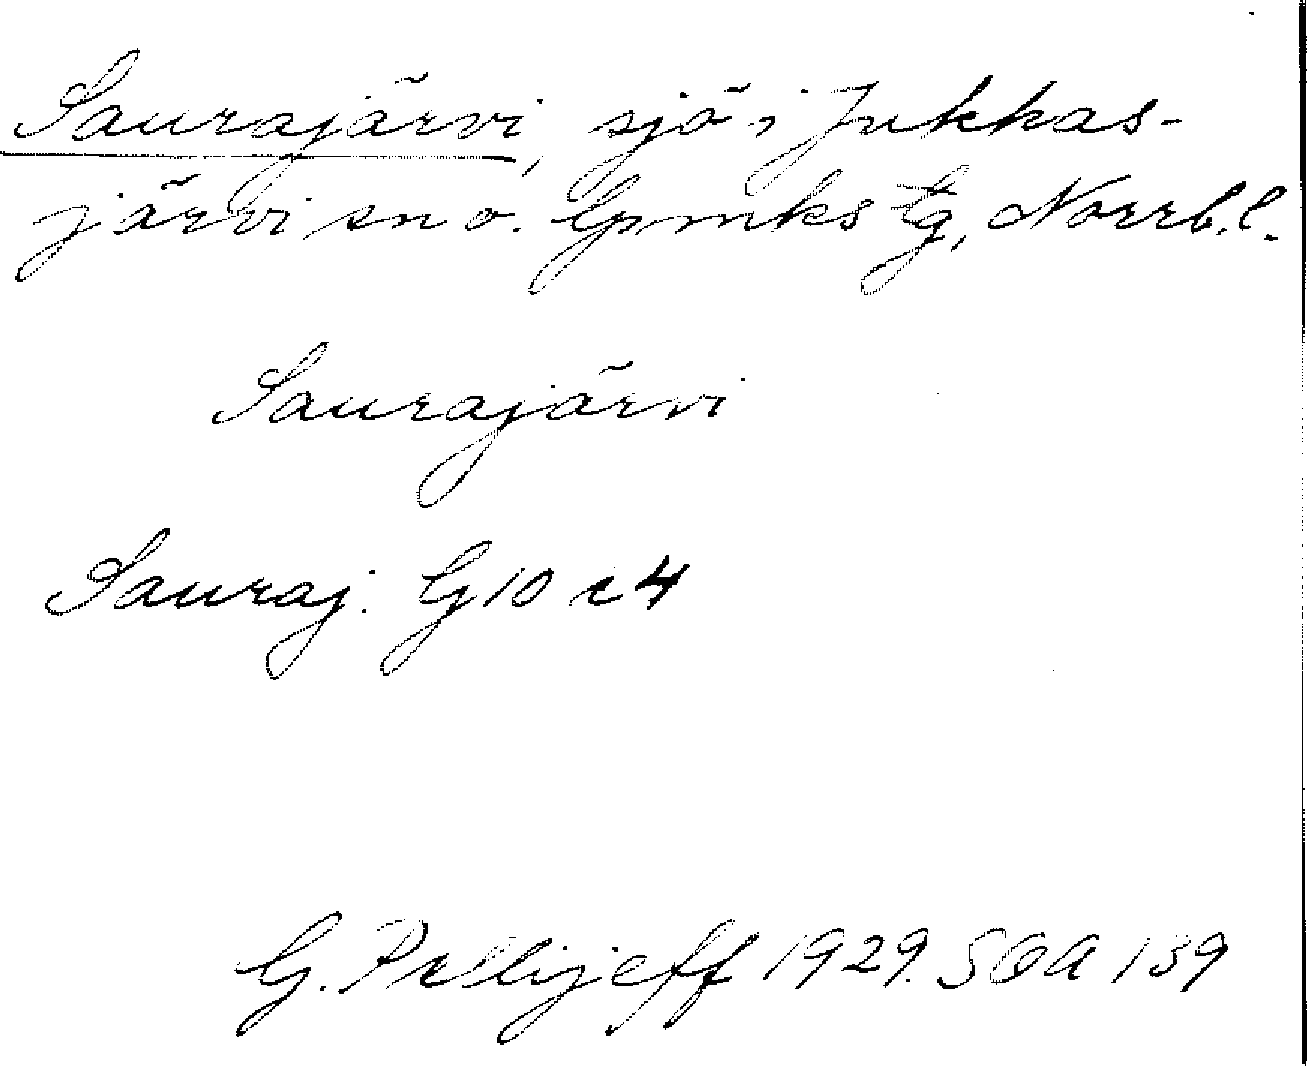 Saurajärvi, sjö i Jukkas-
järvi sn o. Gmks tg, Norrb. l.
Saurajärvi
Sauraj. G 10 c 4
G. Pellijeff 1929. SOA 139